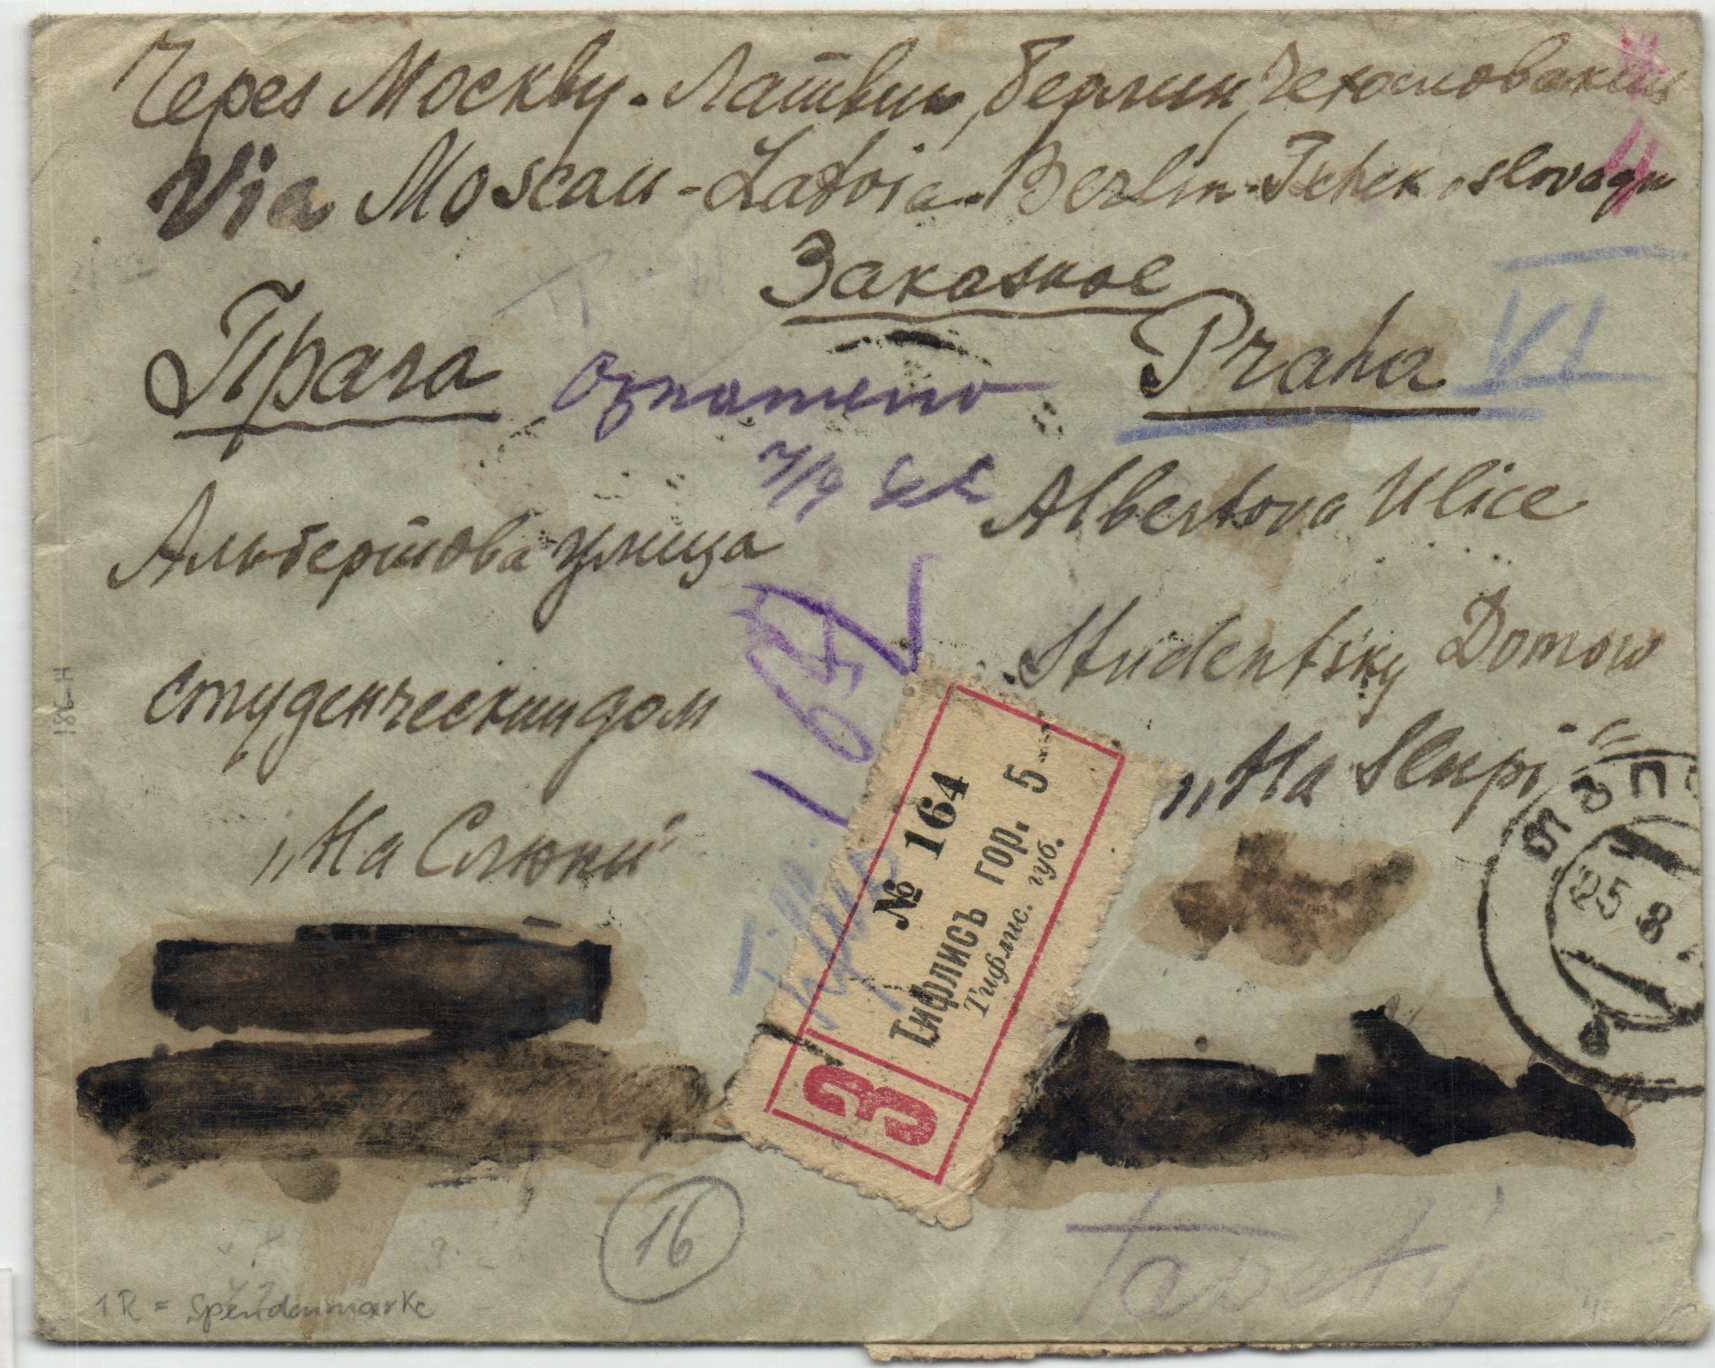 Через Москву. Латвию, Берлин, Чехословакию
Via Moscau-Latvia-Berlin-Tchekoslovaqu
Заказное
Прага
Praha
VI
Альбертова улица
Albertova Ulice
студенческий дом
Studentsky Domow
„На Слюпи"
„Na Slupi"
№ 164
Тифлисъ гор. 5
Тифлис. губ.
З
25 8
16
1R = Spendenmarke